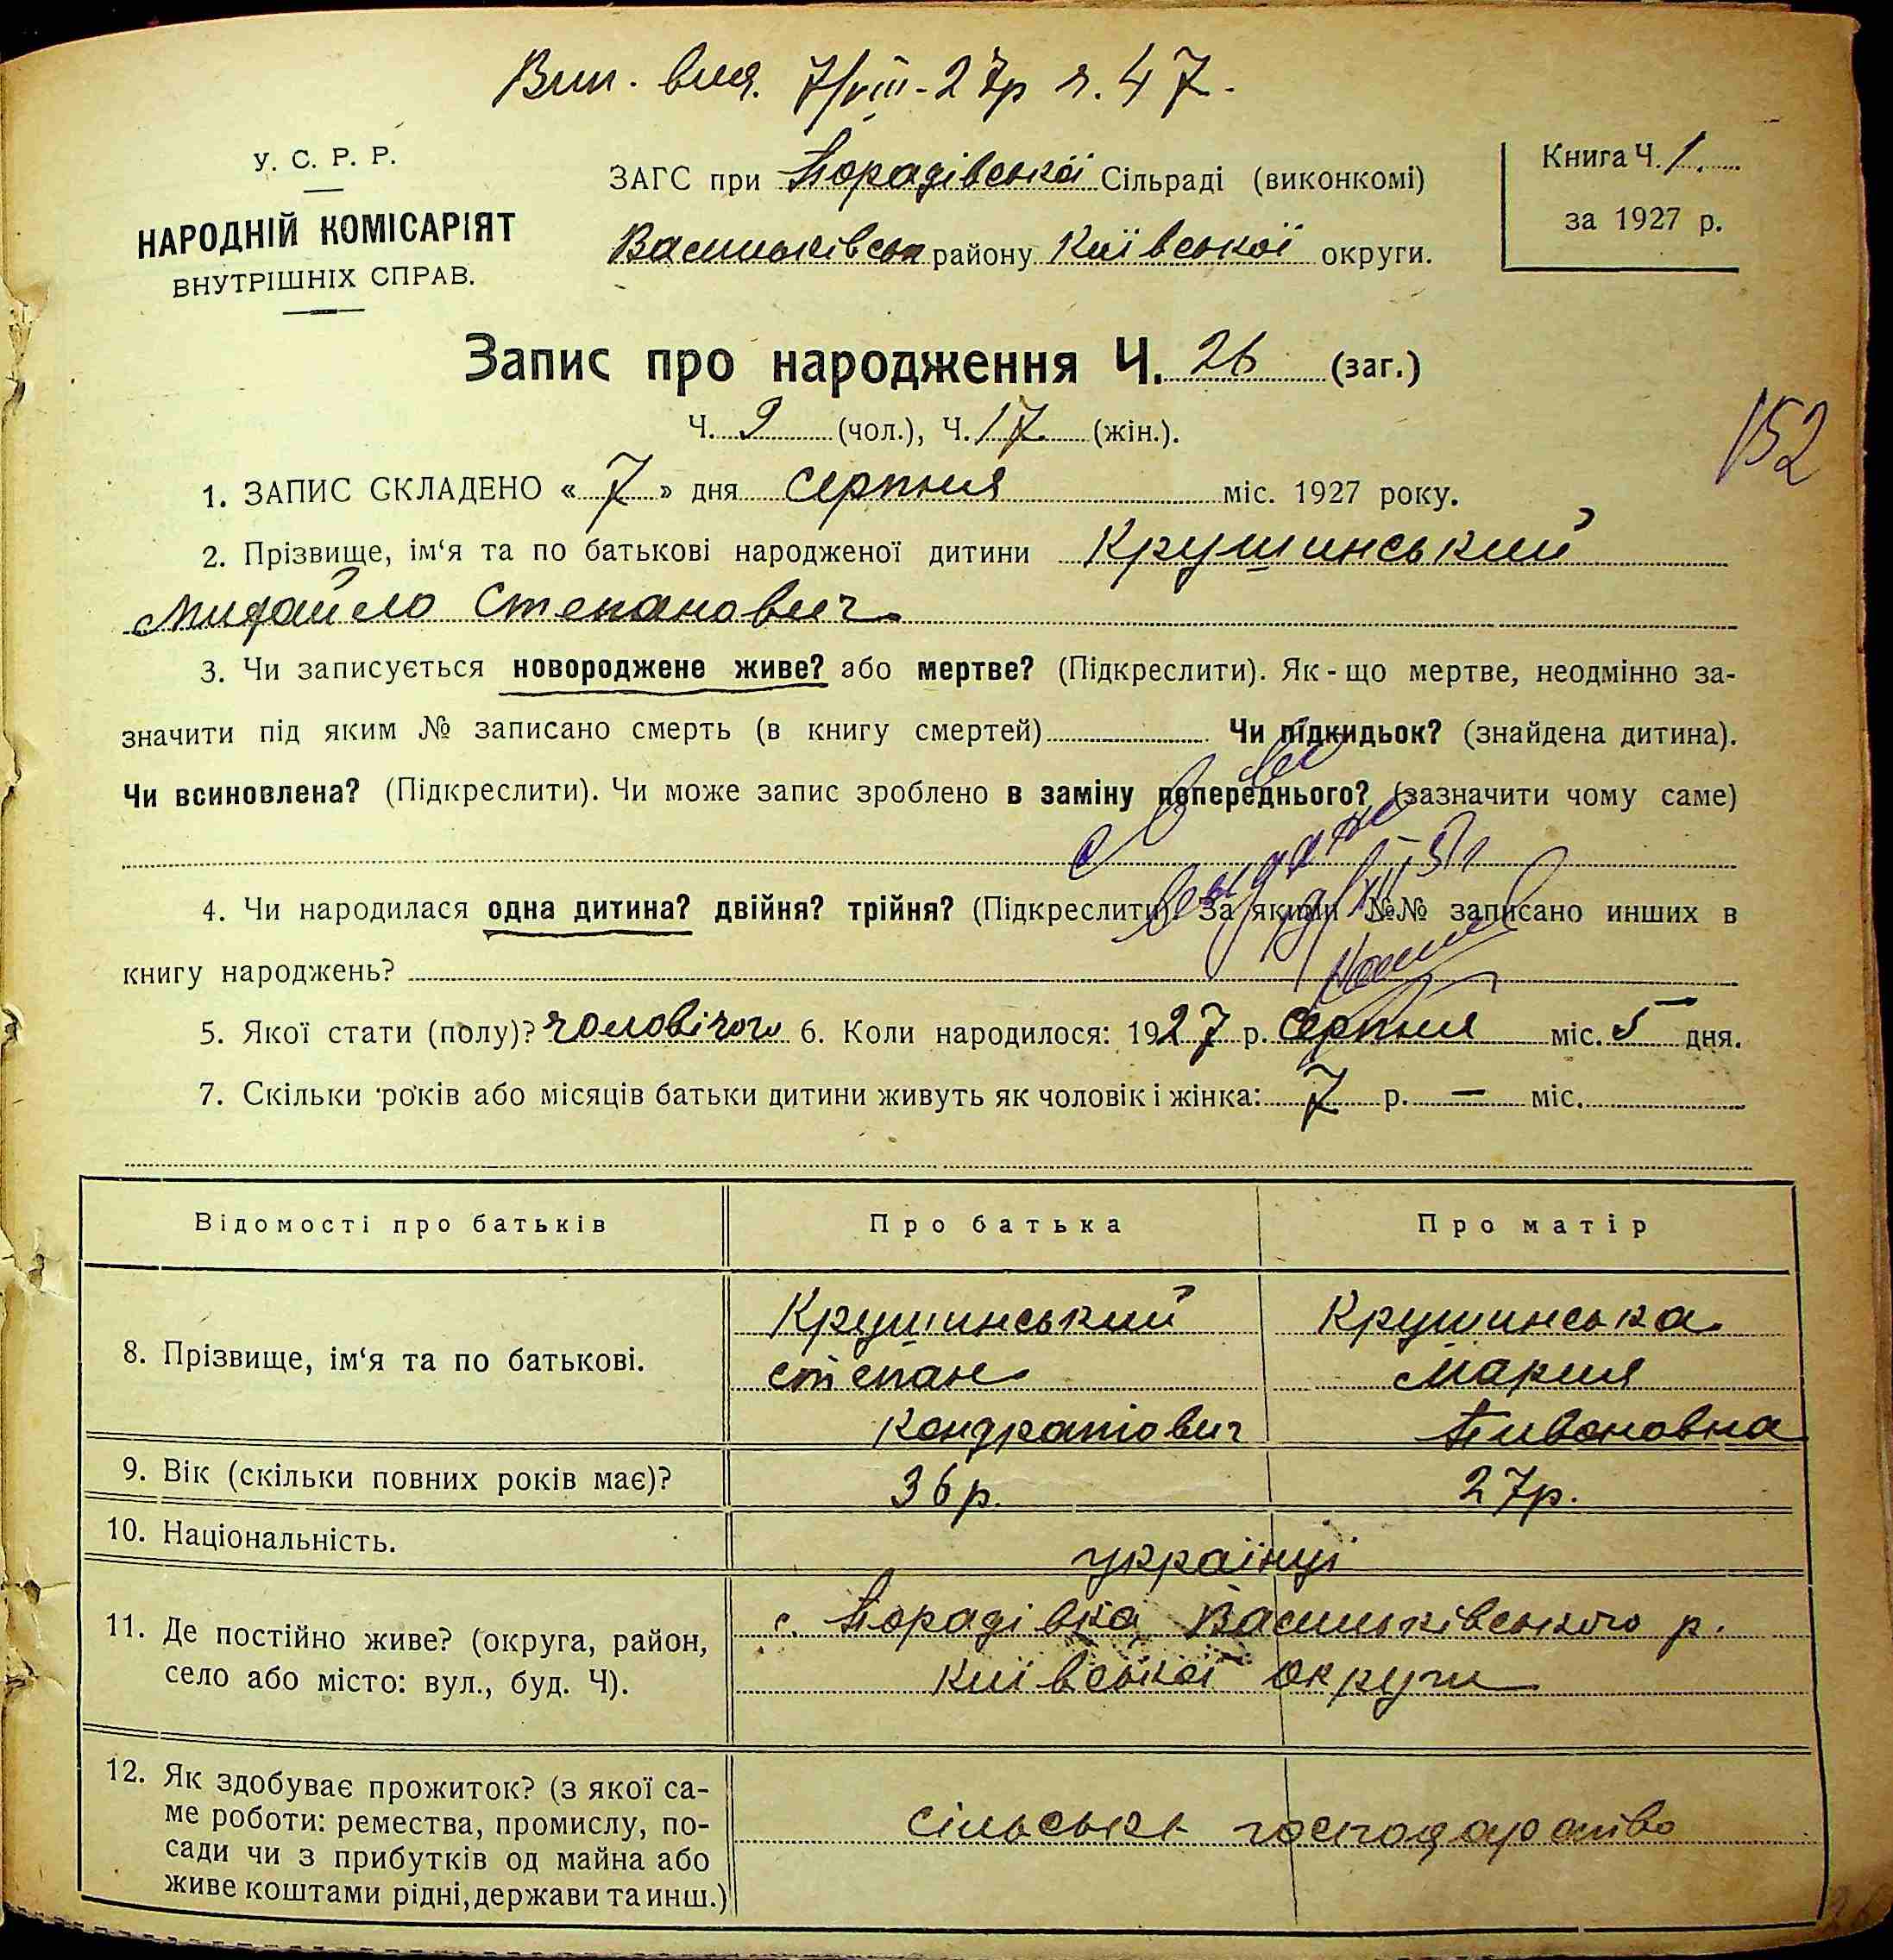 Вип. вид. 7/VIII-27р ч. 47.
У. С. Р. Р.
НАРОДНІЙ КОМІСАРІЯТ
ВНУТРІШНІХ СПРАВ.
ЗАГС при Порадівській Сільраді (виконкомі)
Васильківськ району Київської округи.
Книга Ч. 1.
за 1927 р.
Запис про народження Ч. 26 (заг.)
Ч. 9 (чол.), Ч. 17 (жін.).
152
1. ЗАПИС СКЛАДЕНО « 7 » дня серпня міс. 1927 року.
2. Прізвище, ім‘я та по батькові народженої дитини Крушинський
Михайло Степанович
3. Чи записується новороджене живе? або мертве? (Підкреслити). Як-що мертве, неодмінно за-
значити під яким № записано смерть (в книгу смертей) Чи підкидьок? (знайдена дитина).
Чи всиновлена? (Підкреслити). Чи може запис зроблено в заміну попереднього? (зазначити чому саме)
4. Чи народилася одна дитина? двійня? трійня? (Підкреслити). За якими №№ записано инших в
книгу народжень?
5. Якої стати (полу)? чоловічого 6. Коли народилося: 1927 р. серпня міс. 5 дня.
7. Скільки років або місяців батьки дитини живуть як чоловік і жінка: 7 р. — міс.
Відомості про батьків Про батька Про матір
8. Прізвище, ім‘я та по батькові.
Крушинський
степан
Кондратович
Крушинська
Мария
Пивоновна
9. Вік (скільки повних років має)? 36р. 27р.
10. Національність. українці
11. Де постійно живе? (округа, район,
село або місто: вул., буд. Ч).
с. Порадівка Васильківського р.
Київської округи
12. Як здобуває прожиток? (з якої са-
ме роботи: ремества, промислу, по-
сади чи з прибутків од майна або
живе коштами рідні, держави та инш.)
сільське господарство